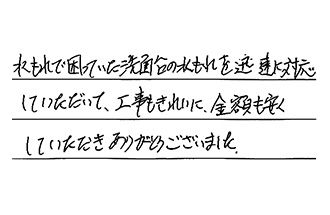 水もれで困っていた洗面台の水もれを迅速に対応
していただいて、工事もきれいに、金額も安く
していただきありがとうございました。